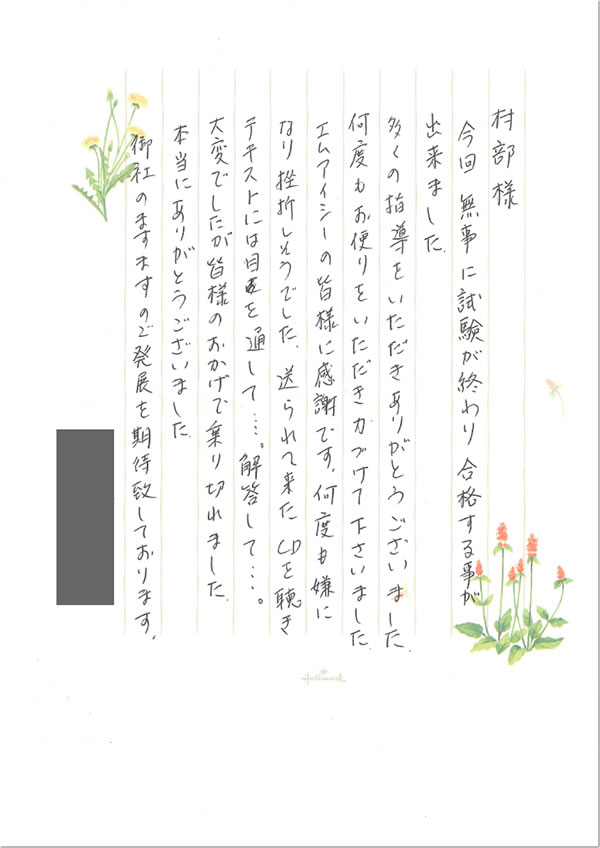 村部様
今回 無事に試験が終わり 合格する事が
出来ました。
多くの指導をいただきありがとうございました。
何度もお便りをいただき力づけて下さいました。
エムアイシーの皆様に感謝です。何度も嫌に
なり挫折しそうでした。送られて来たCDを聴き
テキストには目を通して…。解答して…。
大変でしたが皆様のおかげで乗り切れました。
本当にありがとうございました。
御社のますますのご発展を期待致しております。
Hallmark